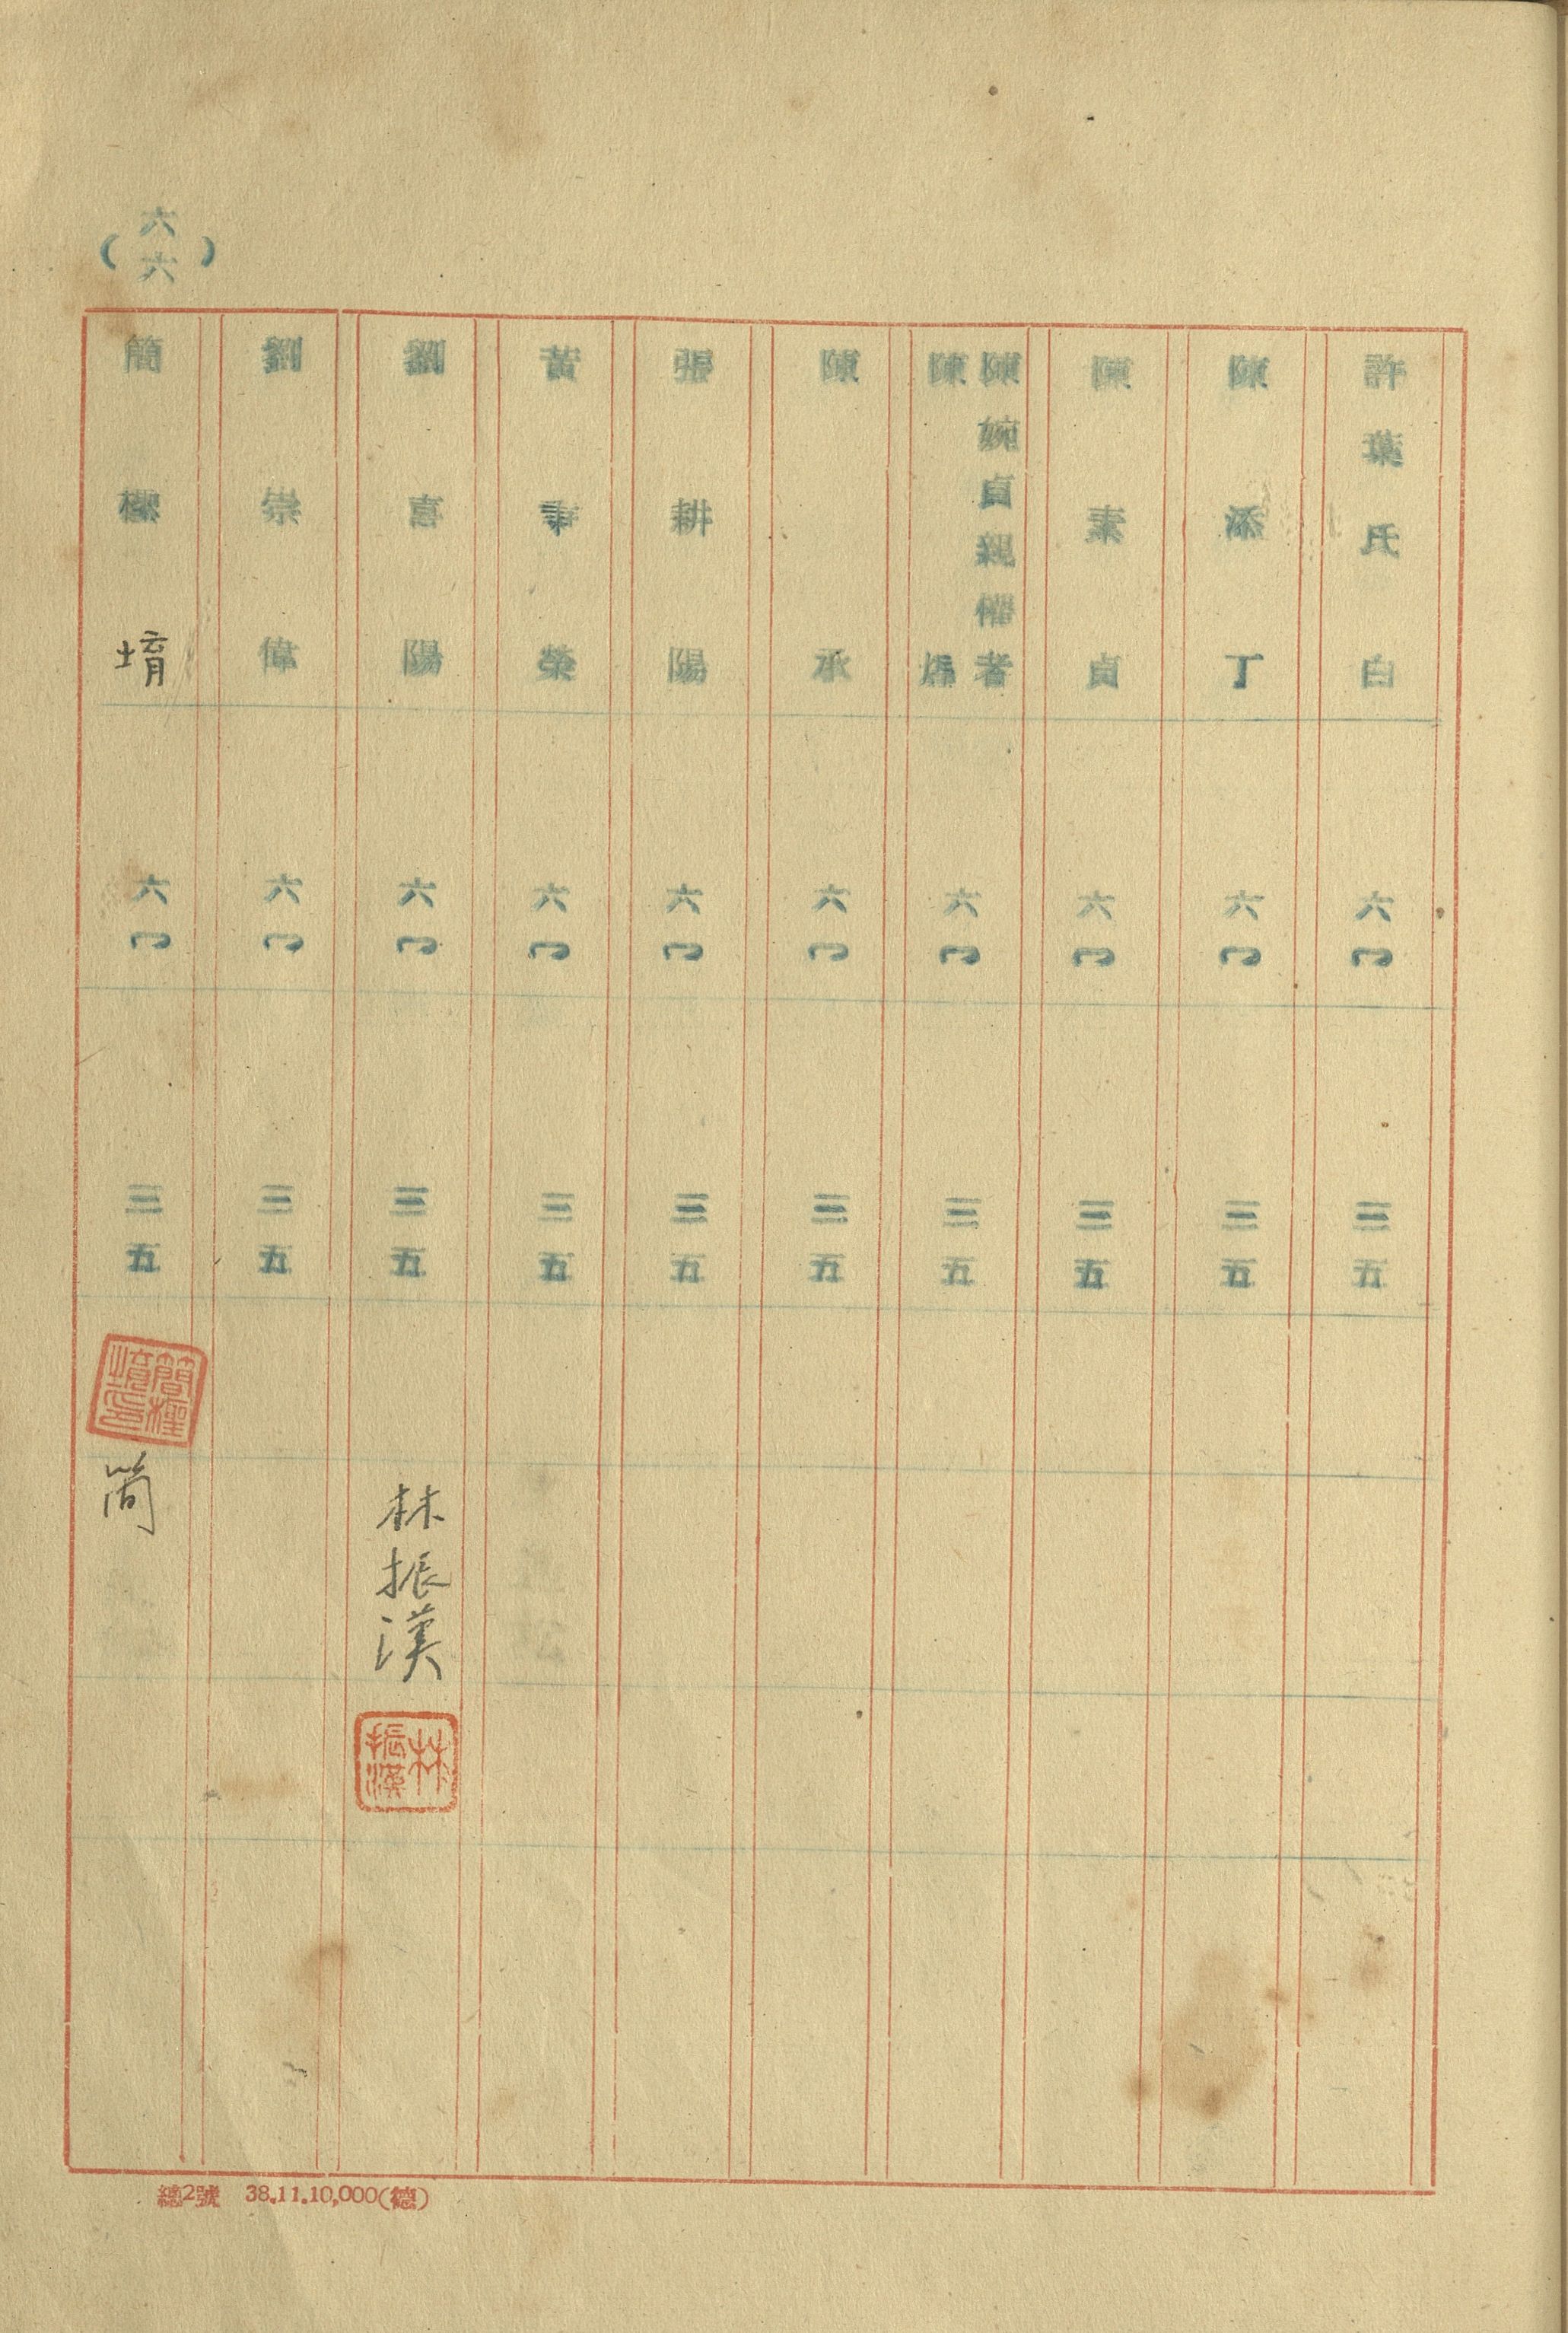 許葉氏白 六〇 三五
陳添丁 六〇 三五
陳素貞 六〇 三五
陳婉貞親權者
陳 六〇 三五
陳承 六〇 三五
張耕陽 六〇 三五
黃 榮 六〇 三五
劉喜陽 六〇 三五 林振漢
林振漢
劉崇偉 六〇 三五
簡 堉 六〇 三五
簡
(六六)
總2號 38.11.10,000(德)